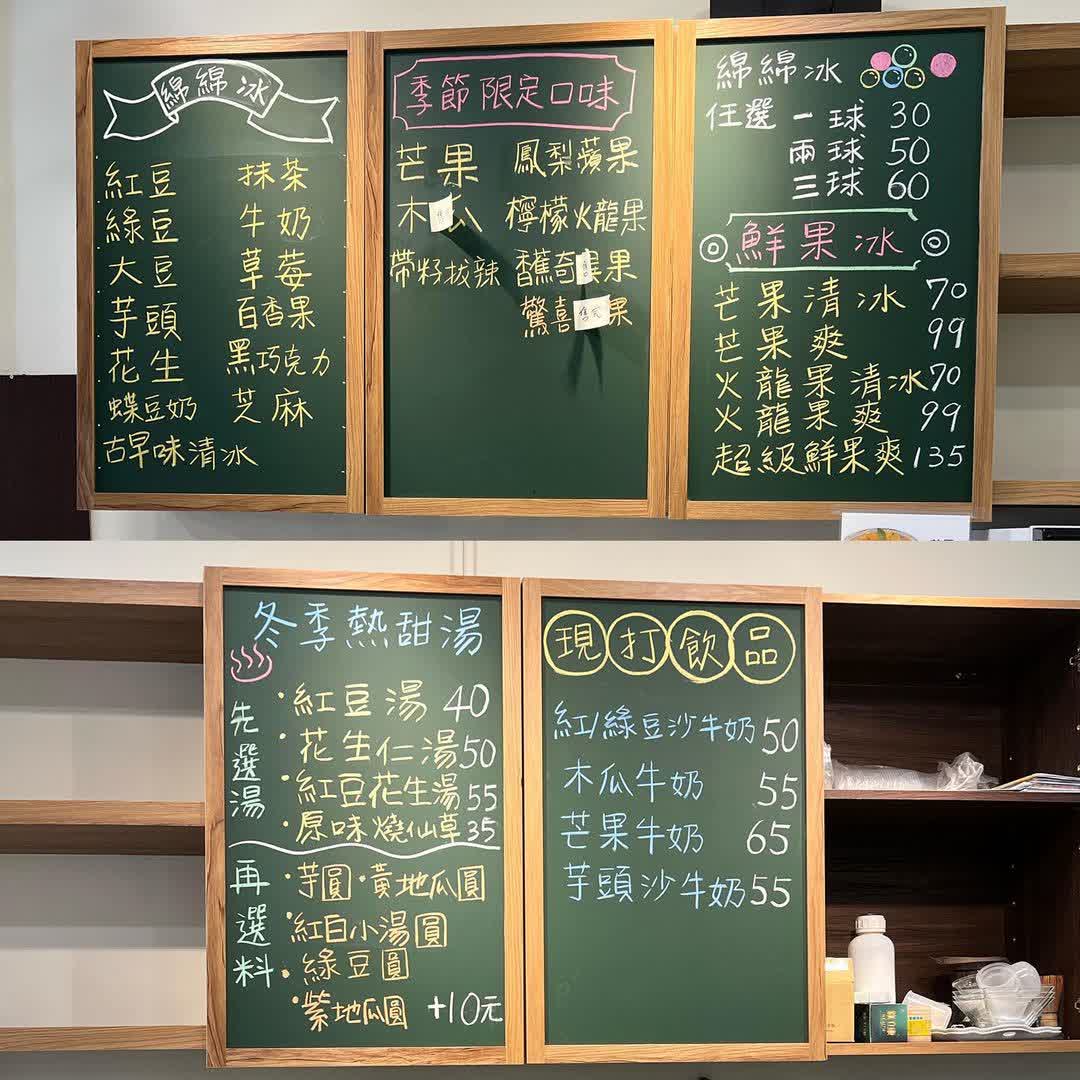 綿綿冰
紅豆 抹茶
綠豆 牛奶
大豆 草莓
芋頭 百香果
花生 黑巧克力
蝶豆奶 芝麻
古早味清冰
季節限定口味
芒果 鳳梨蘋果
木瓜 檸檬火龍果
帶籽拔辣 香蕉奇異果
驚喜 果
售完
綿綿冰
任選一球 30
兩球 50
三球 60
鮮果冰
芒果清冰 70
芒果爽 99
火龍果清冰 70
火龍果爽 99
超級鮮果爽 135
冬季熱甜湯
先選湯
·紅豆湯 40
·花生仁湯 50
·紅豆花生湯 55
·原味燒仙草 35
再選料
·芋圓·黃地瓜圓
·紅白小湯圓
·綠豆圓
·紫地瓜圓 +10元
現打飲品
紅/綠豆沙牛奶 50
木瓜牛奶 55
芒果牛奶 65
芋頭沙牛奶 55